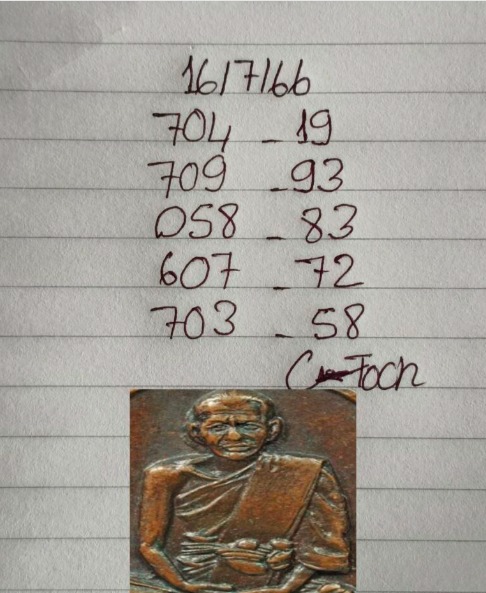 16/7/66
704 - 19
709 - 93
058 - 83
607 - 72
703 - 58